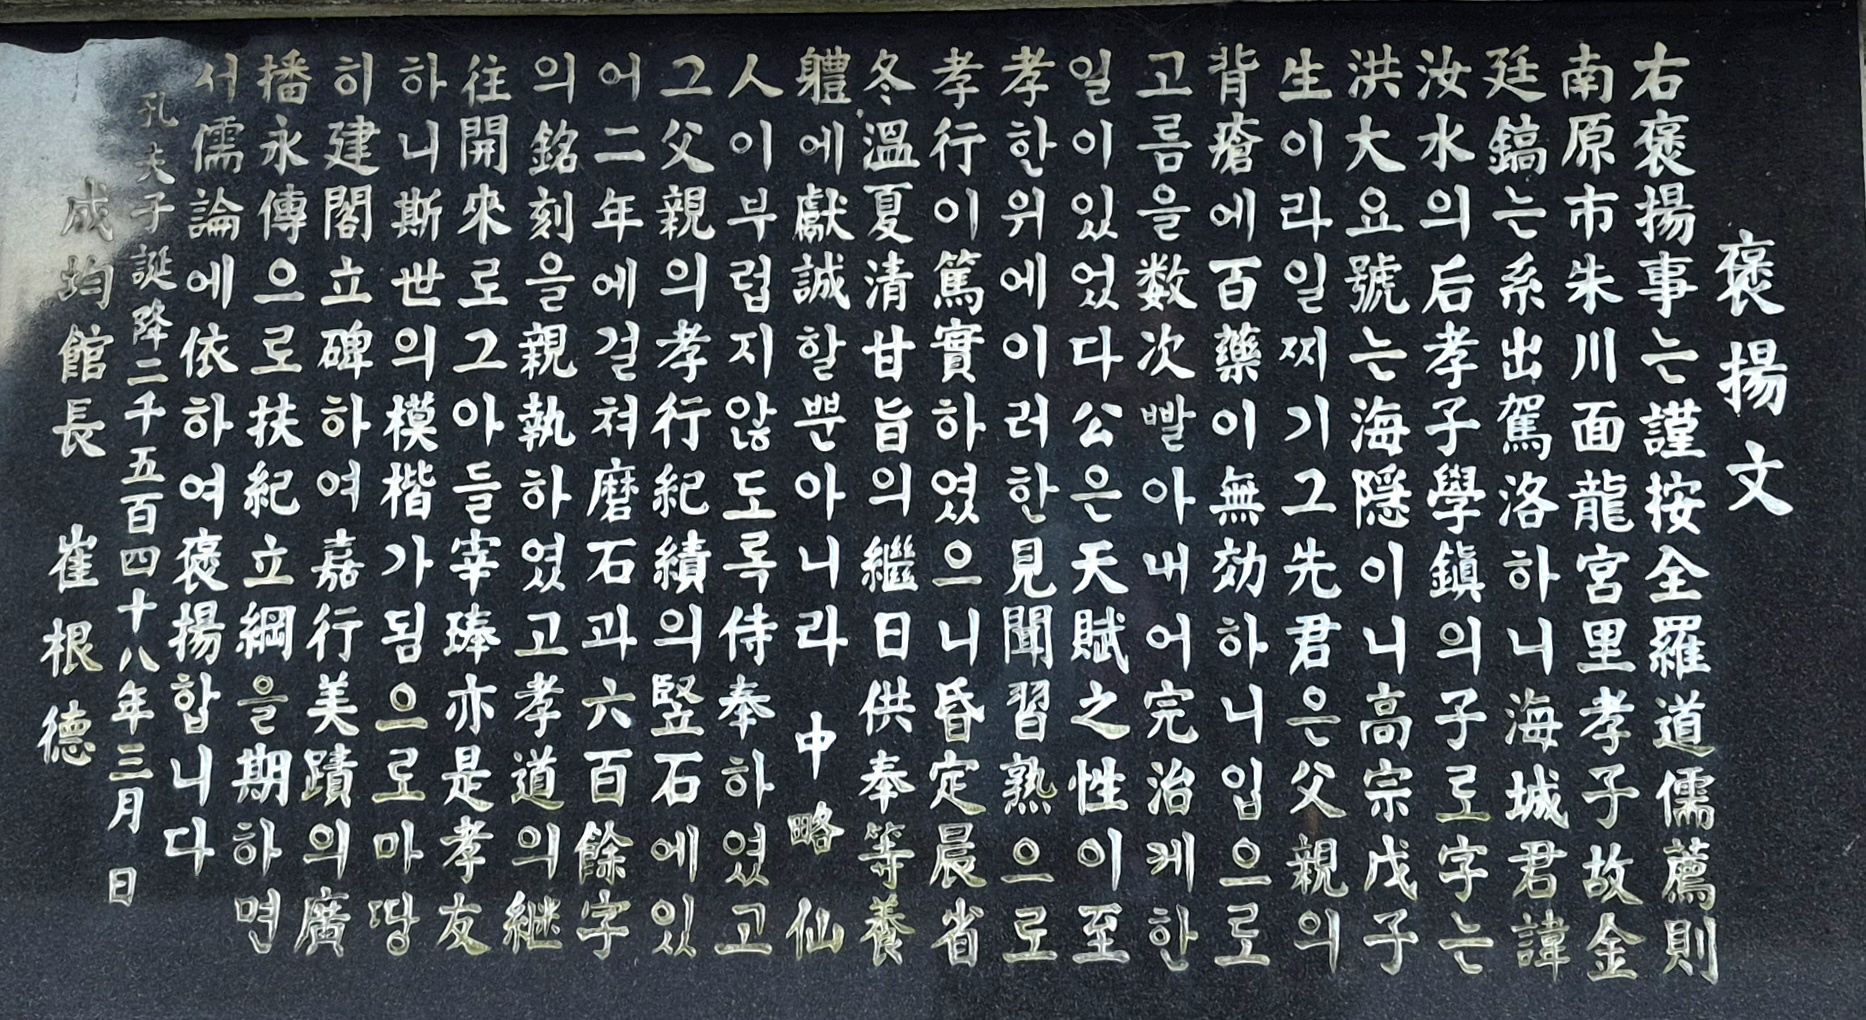 褒揚文
右褒揚事는謹按全羅道儒薦則
南原市朱川面龍宮里孝子故金
廷鎬는系出駕洛하니海城君諱
汝水의后孝子學鎭의子로字는
洪大요號는海隱이니高宗戊子
生이라일찌기그先君은父親의
背瘡에百藥이無効하니입으로
고름을数次빨아내어完治케한
일이있었다公은天賦之性이至
孝한위에이러한見聞習熟으로
孝行이篤實하였으니昏定晨省
冬溫夏清甘旨의繼日供奉等養
軆에獻誠할뿐아니라 中略 仙
人이부럽지않도록侍奉하였고
그父親의孝行紀績의竪石에있
어二年에걸쳐磨石과六百餘字
의銘刻을親執하였고孝道의継
往開來로그아들宰琫亦是孝友
하니斯世의模楷가됨으로마땅
히建閣立碑하여嘉行美蹟의廣
播永傳으로扶紀立綱을期하면
서儒論에依하여褒揚합니다
孔夫子誕降二千五百四十八年三月 日
成均館長 崔根德